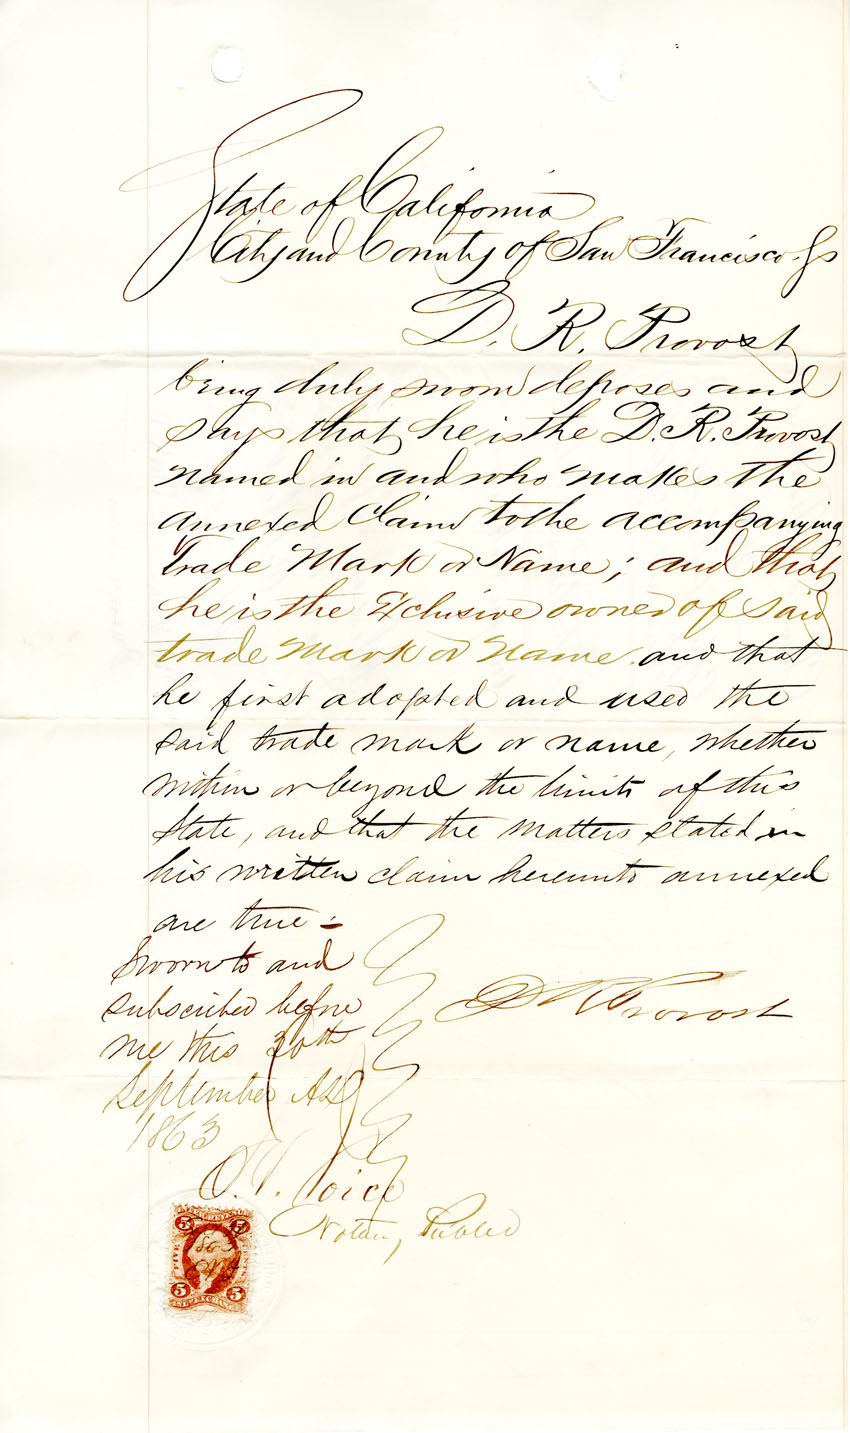 State of California
City and County of San Francisco Ss
D. R. Provost
being duly sworn deposes and
says that he is the D. R. Provost
named in and who makes the
annexed Claim to the accompanying
Trade Mark or Name; and that
he is the Exclusive owner of said
trade Mark or Name. and that
he first adopted and used the
said trade mark or name, whether
within or beyond the limits of this
State, and that the matters stated in
his written claim hereunto annexed
are true :
Sworn to and
subscribed before
me this 30th
September AD
1863
D R Provost
O. V.
Notary Public
5 5
FIVE CENTS
5 5